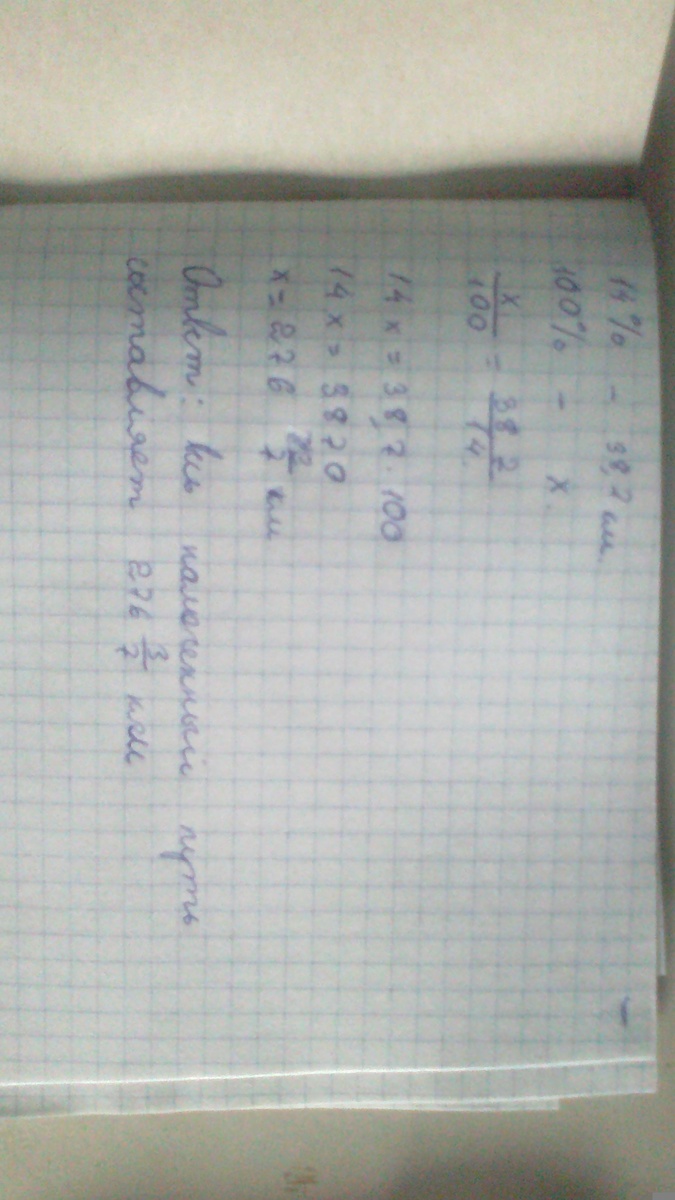 14% - 38,7 км.
100% - x.
x/100 = 38,7/14
14x = 38,7 · 100
14x = 3870
x = 276 3/7 км
Ответ: весь намеченный путь
составляет 276 3/7 км